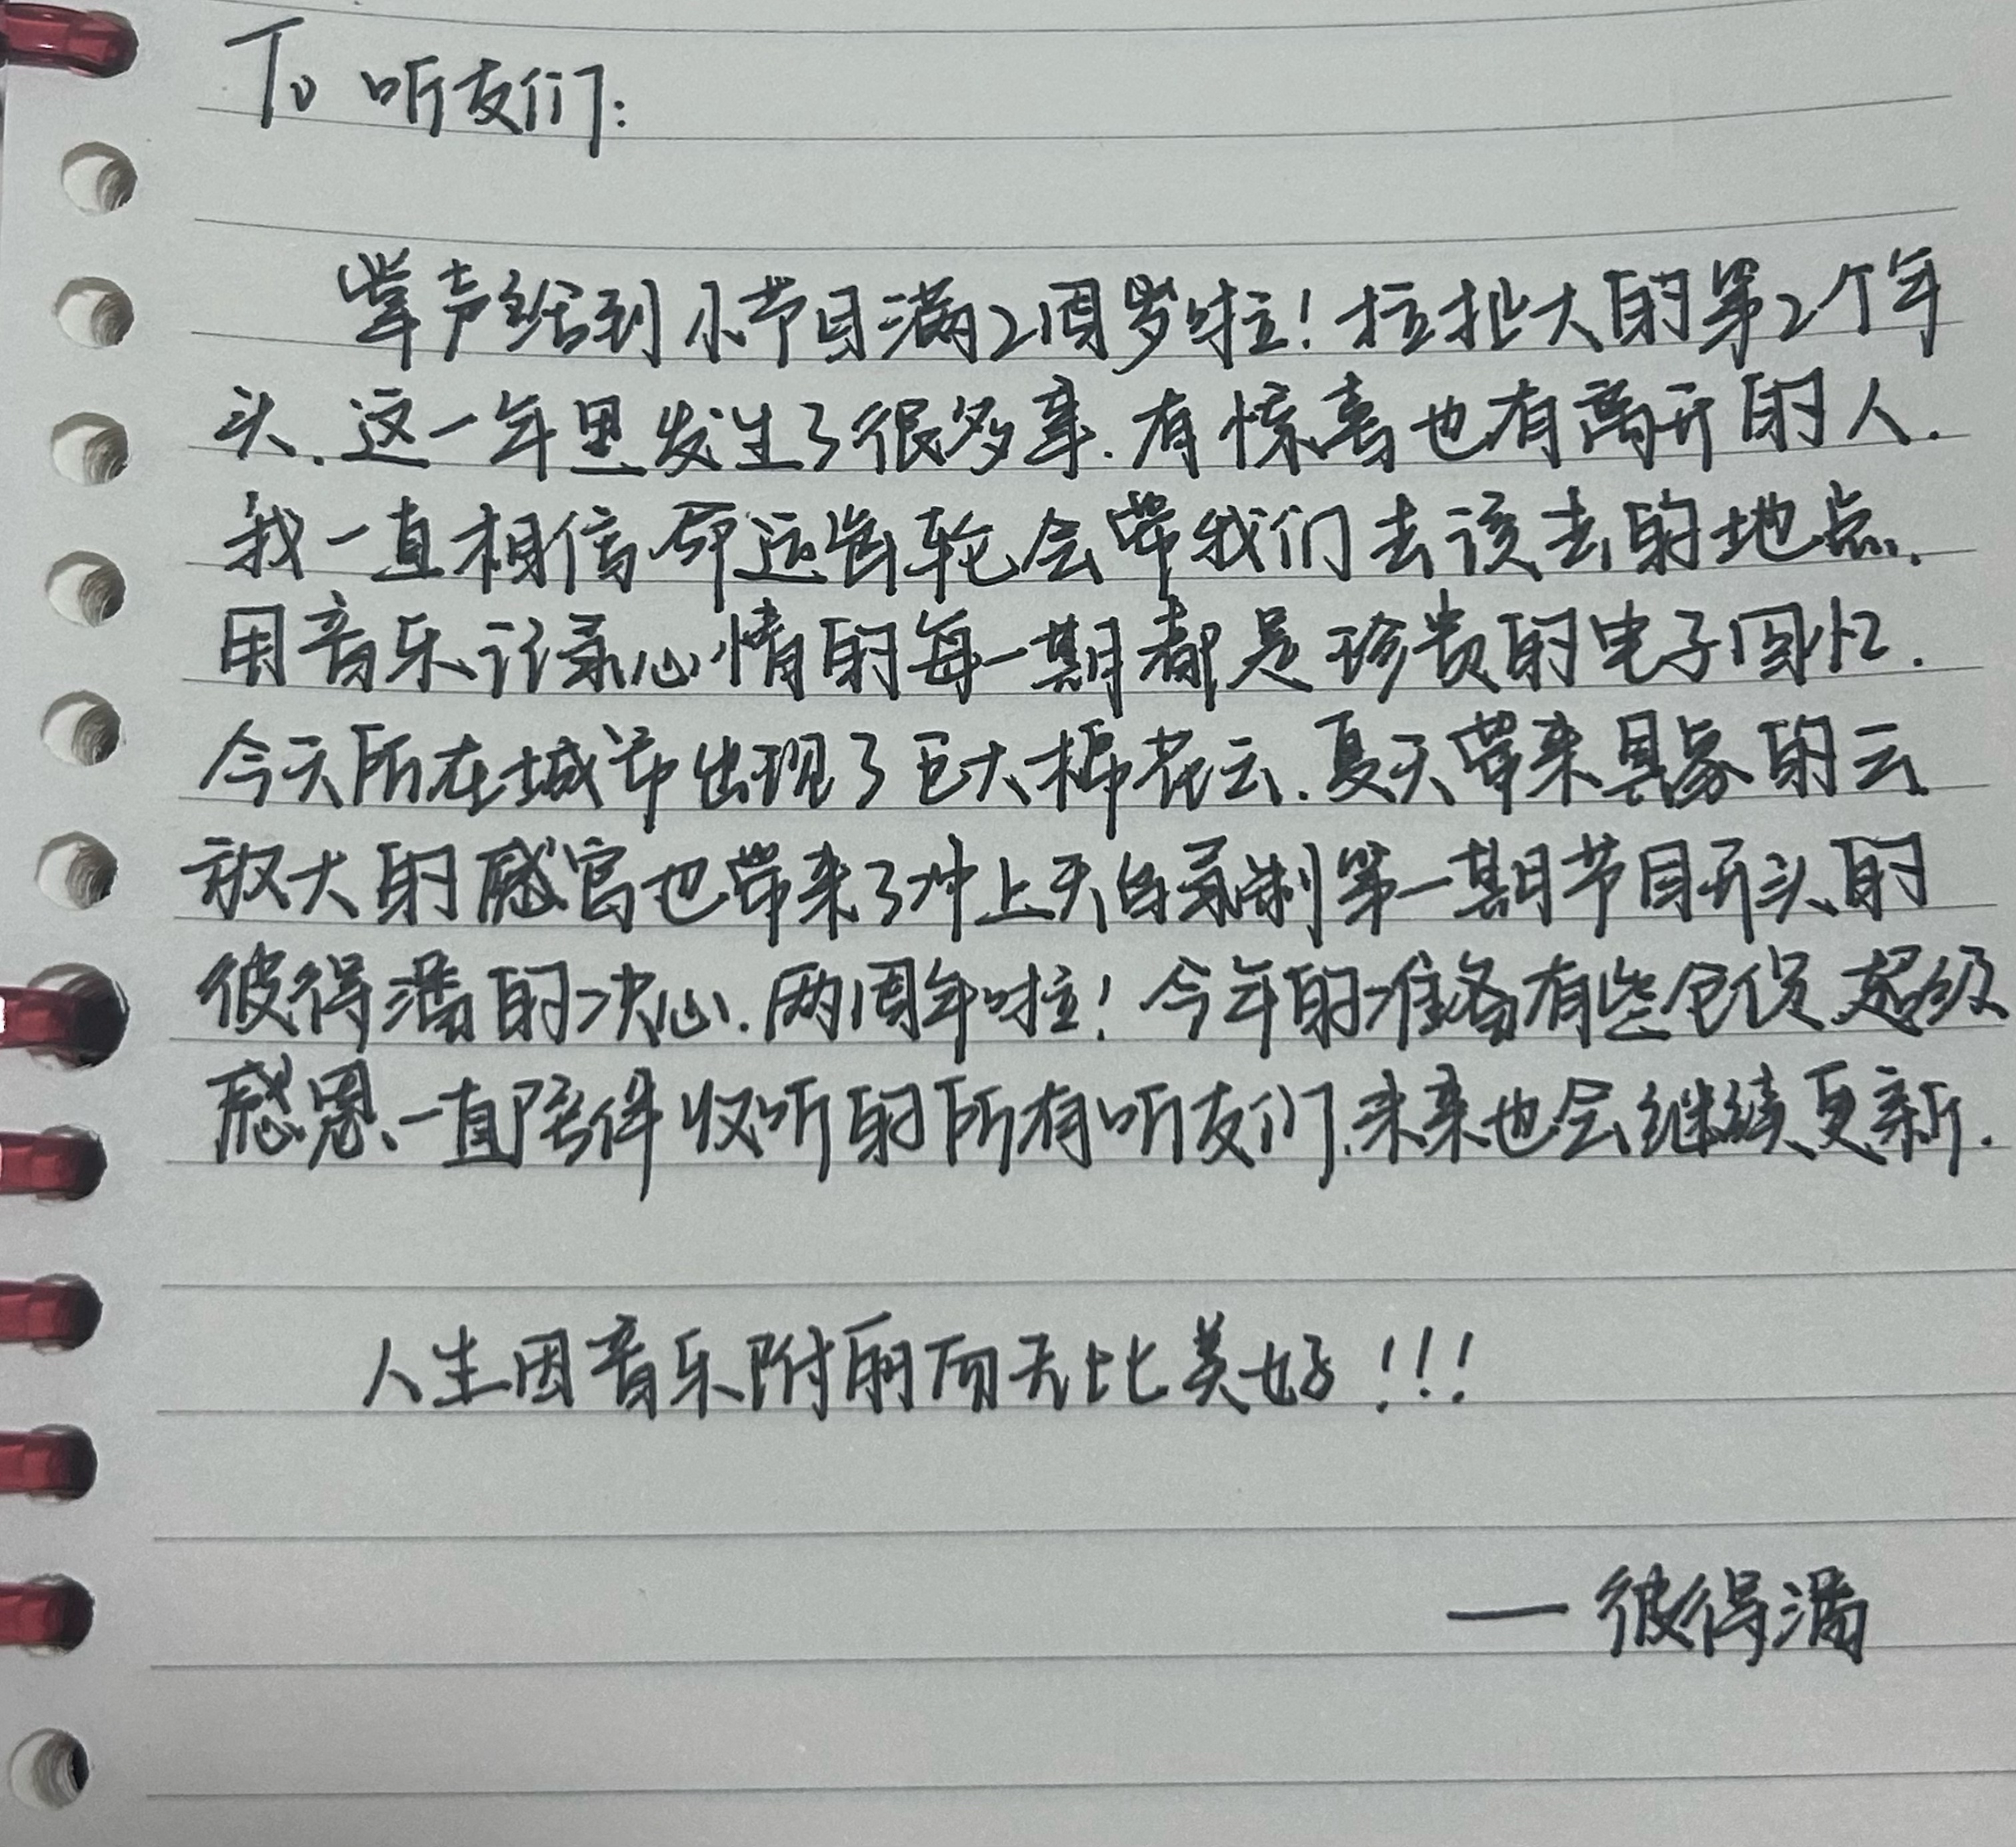 To 听友们:
掌声给到小节目满2周岁啦!拉扯大的第2个年
头.这一年里发生了很多事.有惊喜也有离开的人.
我一直相信命运齿轮会带我们去该去的地点.
用音乐记录心情的每一期都是珍贵的电子回忆.
今天所在城市出现了巨大棉花云.夏天带来具象的云
放大的感官也带来了冲上天台录制第一期节目开头的
彼得潘的决心.两周年啦!今年的准备有些仓促超级
感恩、一直陪伴收听的所有听友们.未来也会继续更新.
人生因音乐附丽而无比美好!!!
——彼得潘